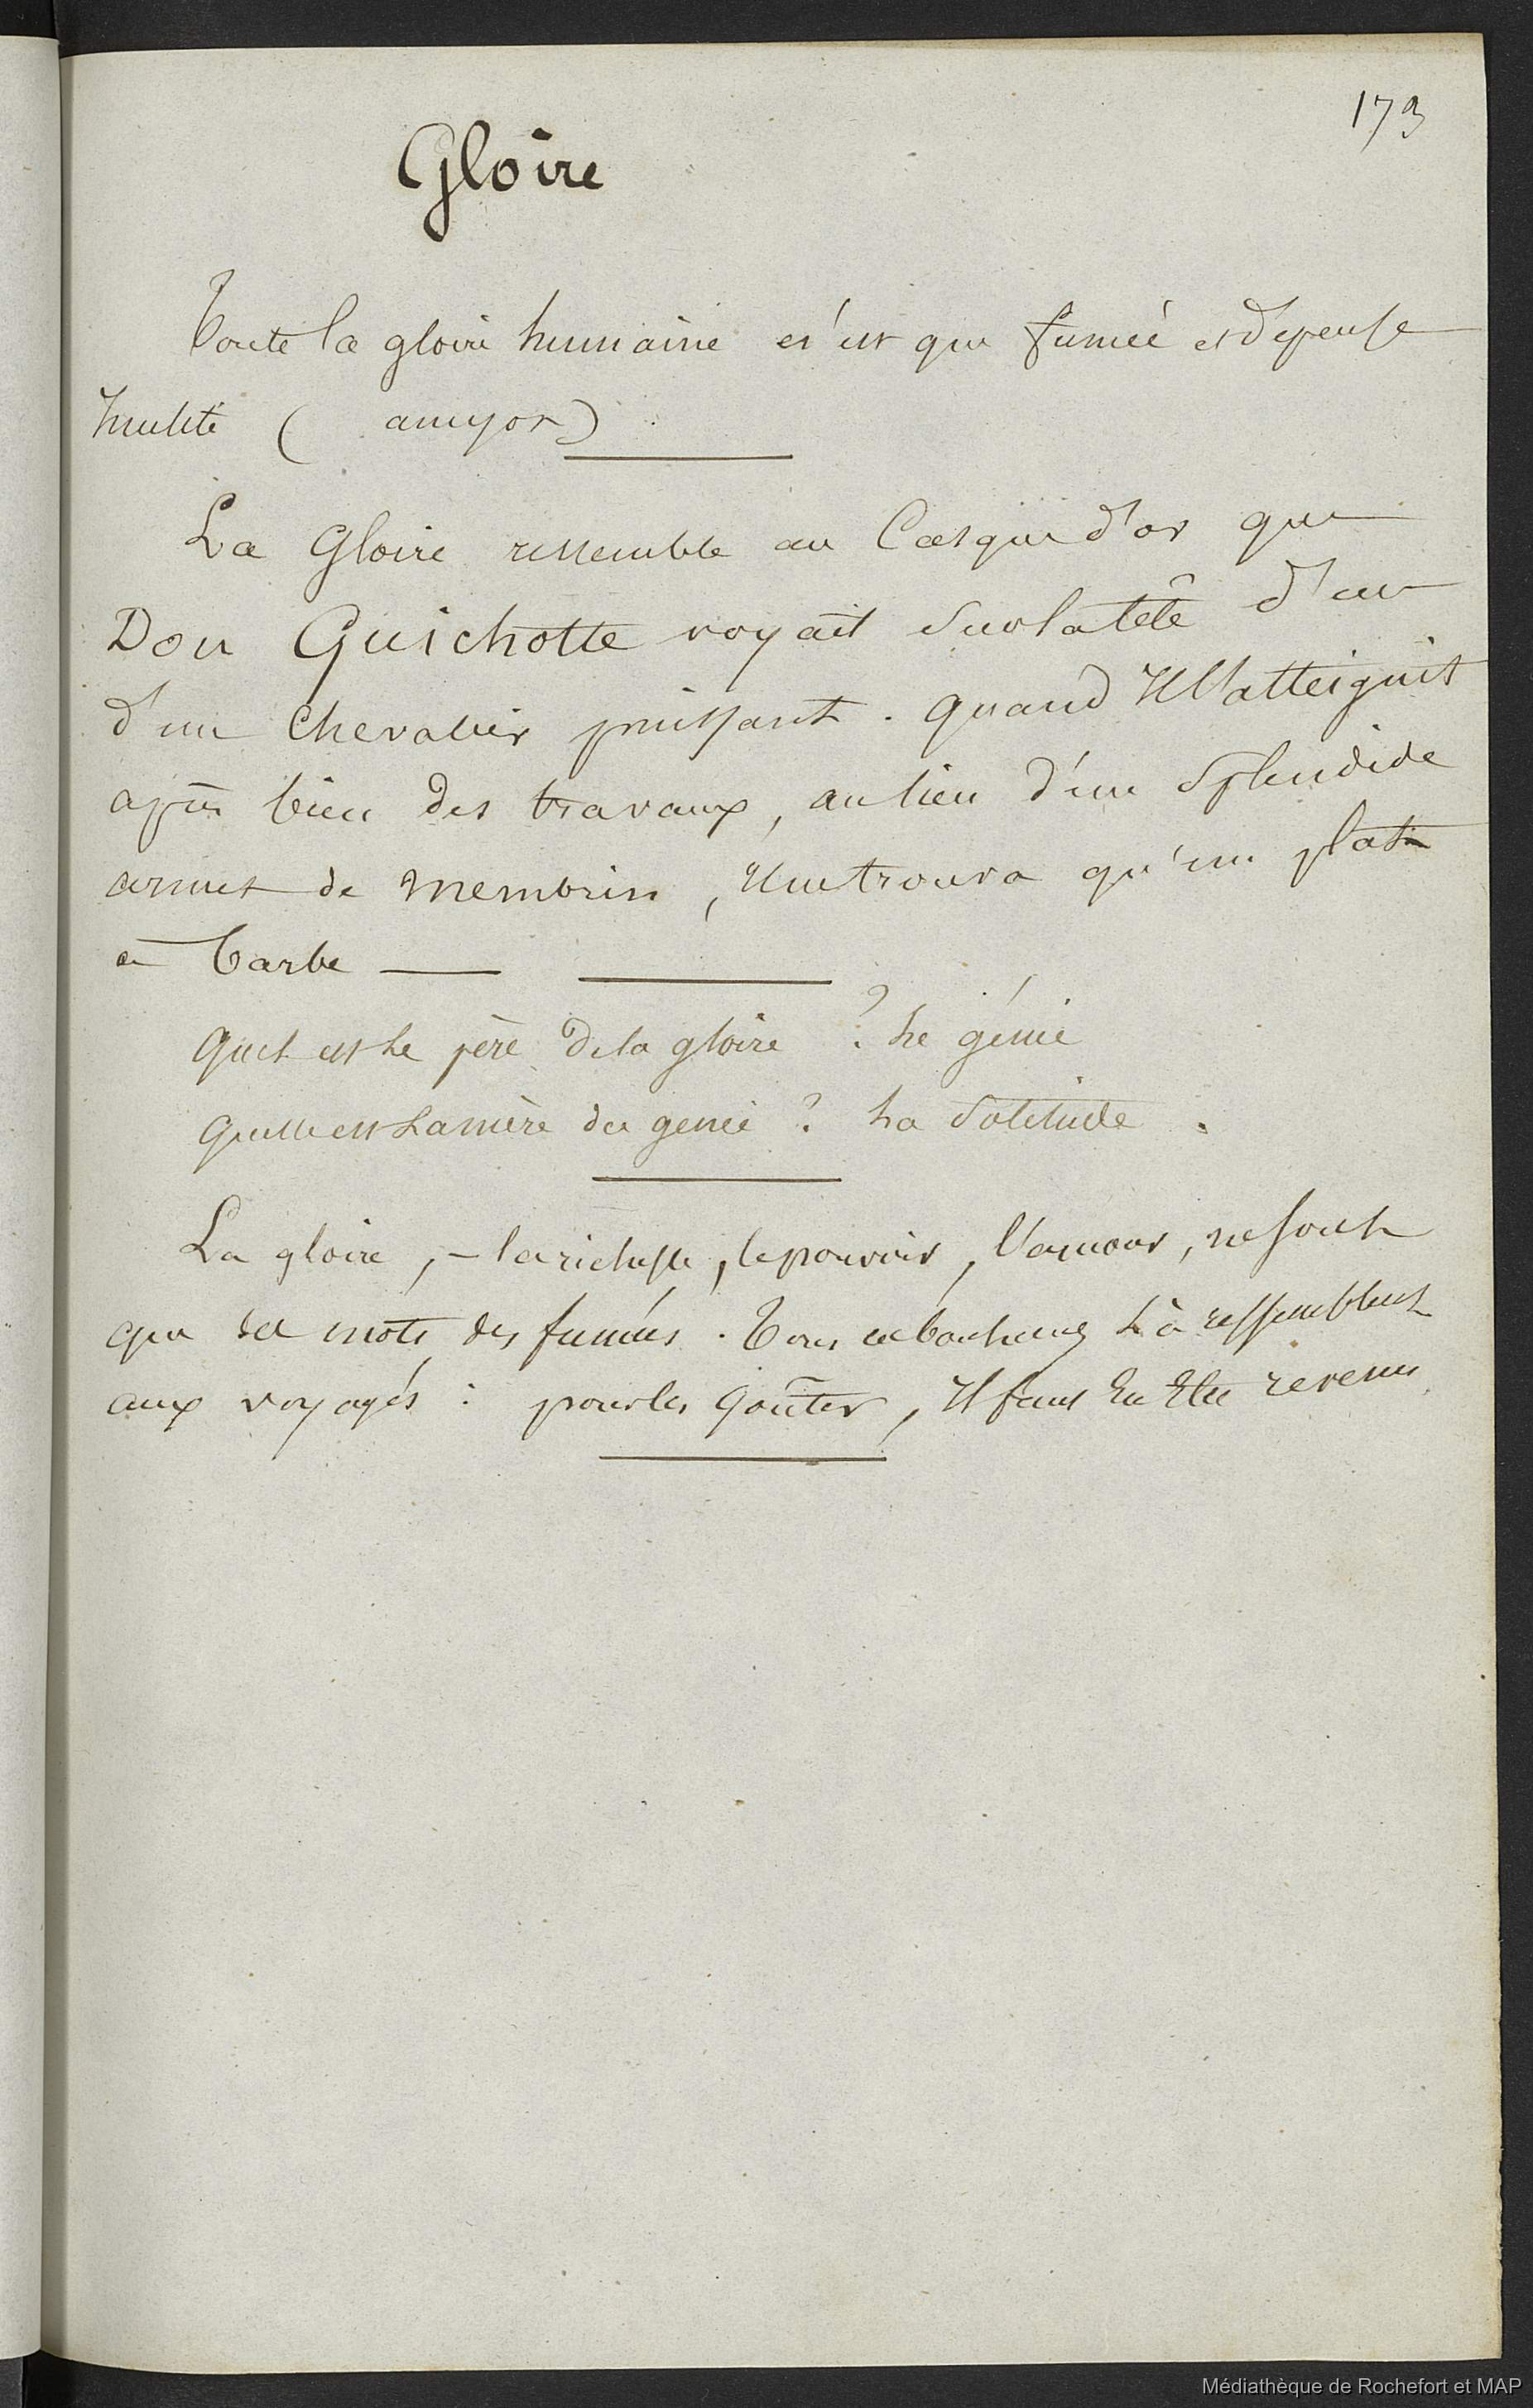 173
Gloire
Toute la gloire humaine n'est que fumée et dépense
Inutile ( amyot)
La Gloire ressemble au Casque d'or que
Don Quichotte voyait sur la tête d'un
d'un Chevalier puissant. quand Il l'atteignit
après bien des travaux, au lieu d'un Splendide
armet de membrin, Il ne trouva qu'un plat
à barbe
quel est le père de la gloire ? le génie
quelle est la mère du genie ? la Solitude.
La gloire, - la richesse, le pouvoir, l'amour, ne sont
que des mots des fumées. Tous ces bonheurs là ressemblent
aux voyages : pour les goûter, Il faut En Etre revenu
Médiathèque de Rochefort et MAP